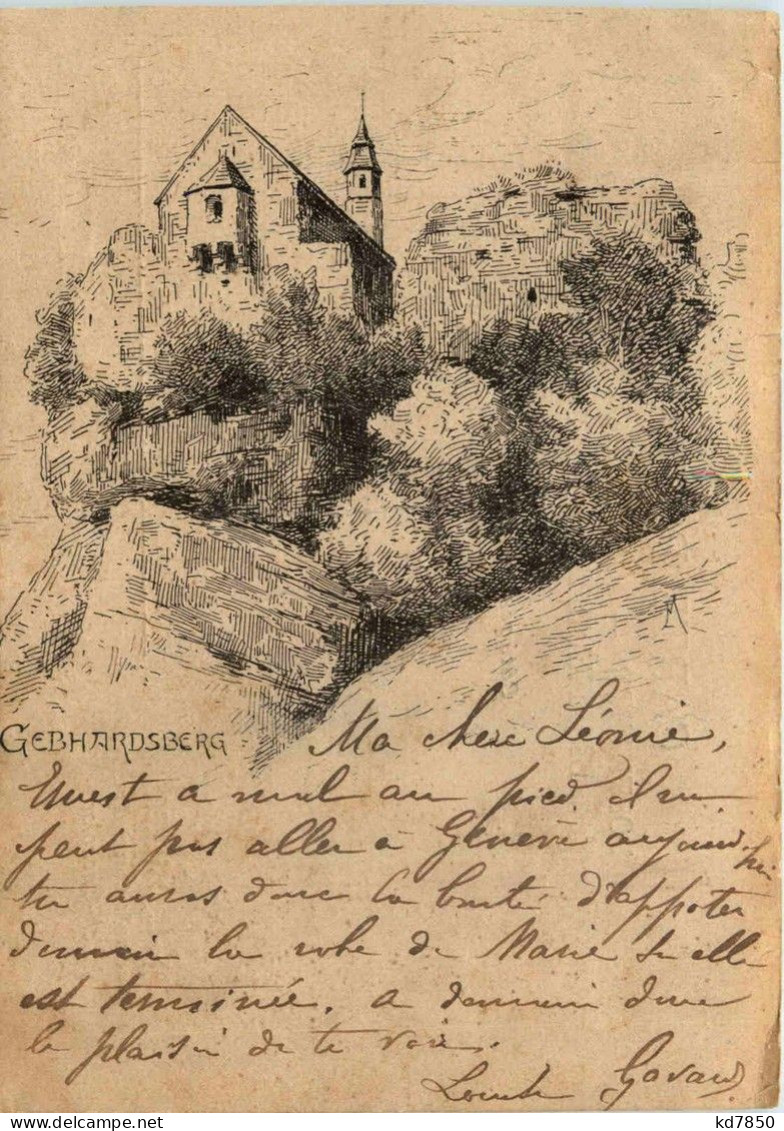 GEBHARDSBERG
Ma chere Léonie,
Ernest a mal au pied il ne
peut pas aller à Genève aujourd'hui
tu auras donc la bonté d'appoter
demain la robe de Marie si elle
est terminée. a demain donc
le plaisir de te voir.
Gavard
www.delcampe.net
kd7850